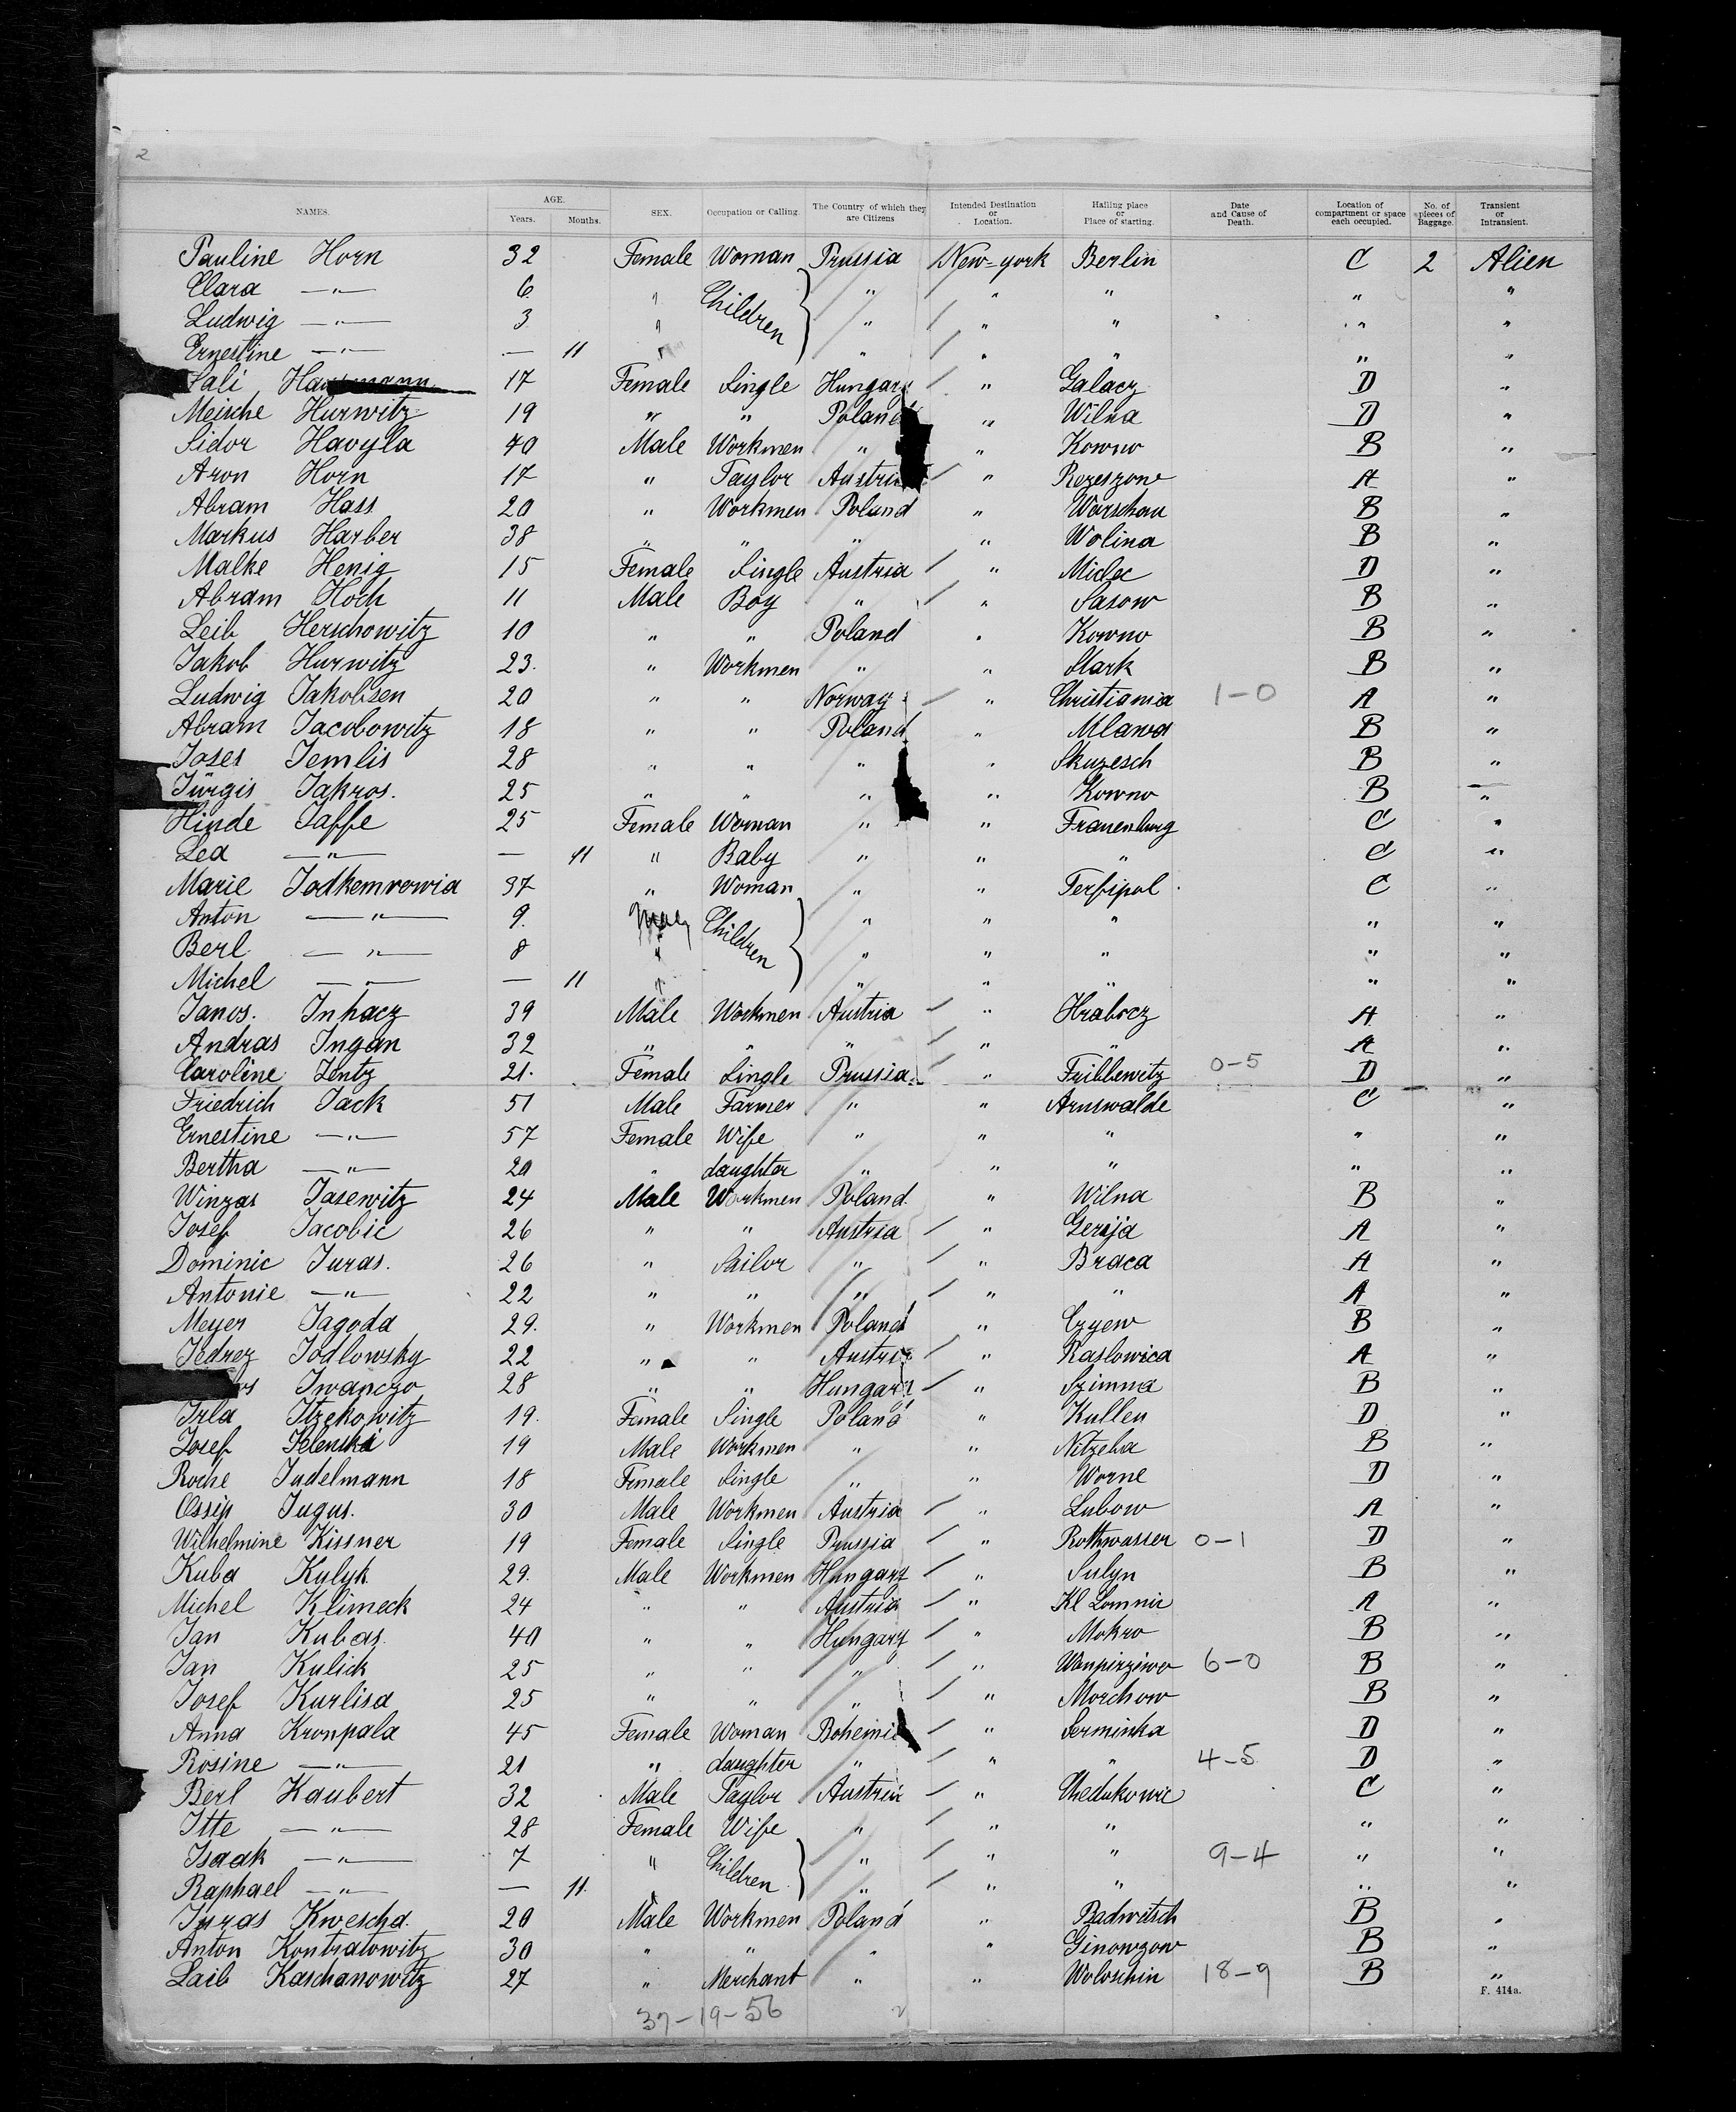 2
NAMES. AGE. Years. Months. SEX. Occupation or Calling. The Country of which they are Citizens Intended Destination or Location. Hailing place or Place of starting. Date and Cause of Death. Location of compartment or space each occupied. No. of pieces of Baggage. Transient or Intransient.
Pauline Horn 32 Female Woman Prussia New-york Berlin C 2 Alien
Clara —"— 6 " Children " " " " "
Ludwig —"— 3 " " / " " " "
Ernestine —"— — 11 " " / " " " "
Sali 17 Female Single Hungary / " Galacz D "
Meische Hurwitz 19 " " Poland " Wilna D "
Sidor Havyla 40 Male Workmen " " Kowno B "
Aron Horn 17 " Taylor Austria / " Rezeszone A "
Abram Hass 20 " Workmen Poland " Warschau B "
Markus Harber 38 " " " " Wolina B "
Malke Henig 15 Female Single Austria / " Mielec D "
Abram Hoch 11 Male Boy " / " Sasow B "
Leib Herschowitz 10 " " Poland " Kowno B "
Jakob Hurwitz 23. " Workmen " " Stark B "
Ludwig Jakobsen 20 " " Norway / " Christiania 1-0 A "
Abram Jacobowitz 18 " " Poland " Mlawa B "
Joses Jemlis 28 " " " " Skuzesch B "
Jürgis Jakros. 25 " " " " Kowno B "
Hinde Jaffe 25 Female Woman " " Frauenburg C "
Lea —"— — 11 " Baby " " " C "
Marie Jodkemrowia 37 " Woman " " C "
Anton —"— 9. Children " " " " "
Berl —"— 8 " " " " " "
Michel —"— — 11 " " " " " "
Janos. Inhacz 39 Male Workmen Austria / " Hrabocz A "
Andras Ingan 32 " " " / " " A "
Caroline Jentz 21. Female Single Prussia / " Fribbewitz 0-5 D "
Friedrich Jack 51 Male Farmer " " Arnswalde C "
Ernestine —"— 57 Female Wife " " " " "
Bertha —"— 20 " daughter " " " " "
Winzas Jasewitz 24 Male Workmen Poland " Wilna B "
Josef Jacobic 26 " " Austria / " Geraja A "
Dominic Juras. 26 " Sailor " / " Braca A "
Antonie —"— 22 " " " / " " A "
Meyer Jagoda 29. " Workmen Poland " Czyew B "
Jedrez Jodlowsky 22 " " Austria / " Raslowica A "
Iwanczo 28 " " Hungary / " Szimna B "
Irla Itzekowitz 19. Female Single Poland " Kullen D "
Josef Jelenski 19 Male Workmen " " Nitzeha B "
Roche Judelmann 18 Female Single " " Worne D "
Ossip Jugus. 30 Male Workmen Austria / " Lubow A "
Wilhelmine Kissner 19 Female Single Prussia / " Rothwasser 0-1 D "
Kuba Kulyk 29. Male Workmen Hungary / " Sulyn B "
Michel Klimeck 24 " " Austria / " Kl Lomnic A "
Jan Kubas 40 " " Hungary / " Mokro B "
Jan Kulick 25 " " " / " 6-0 B "
Josef Kurlisa 25 " " " / " Morchow B "
Anna Kronpala 45 Female Woman Bohemia / " Serminka D "
Rosine —"— 21 " daughter " / " " 4-5 D "
Berl Kaubert 32 Male Taylor Austria / " Chedukowic C "
Itte —"— 28 Female Wife " / " " " "
Isaak —"— 7 " Children " / " " 9-4 " "
Raphael —"— — 11. " " / " " " "
Juras Kwescha. 20 Male Workmen Poland " Badwitsch B "
Anton Kontratowitz 30 " " " " Ginowzow B "
Laib Kaschanowitz 27 " Merchant " " Woloschin 18-9 B "
F. 414a.
37-19-56